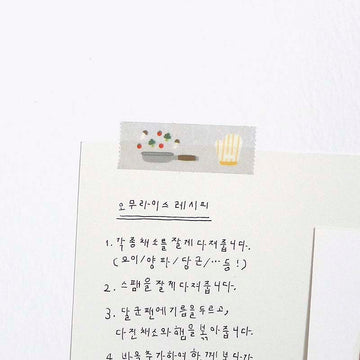 오무라이스 레시피
1. 각종채소를 잘게 다져줍니다.
(오이/양파/당근/…등!)
2. 스팸을 잘게 다져줍니다.
3. 달군팬에 기름을 두르고,
다진채소와 햄을 볶아줍니다.
4. 밥을 추가하여 함께 볶다가